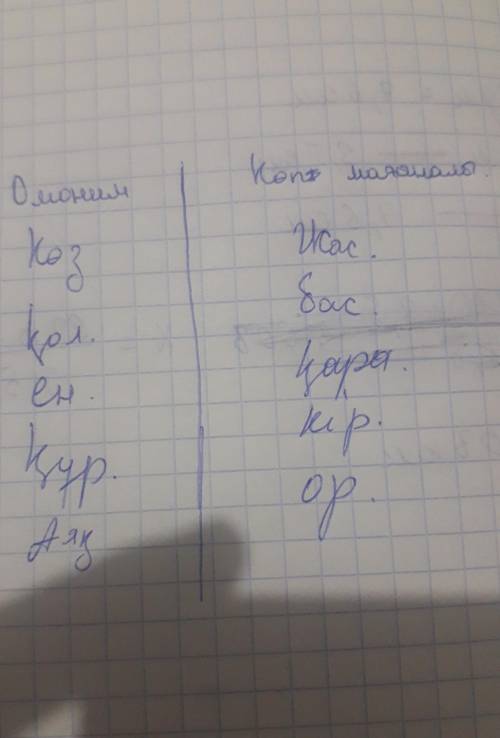 Омоним
Көп мағыналы.
Көз
Жас.
бас.
Қол.
Қара.
ен.
кір.
Құр.
ор.
Аяқ